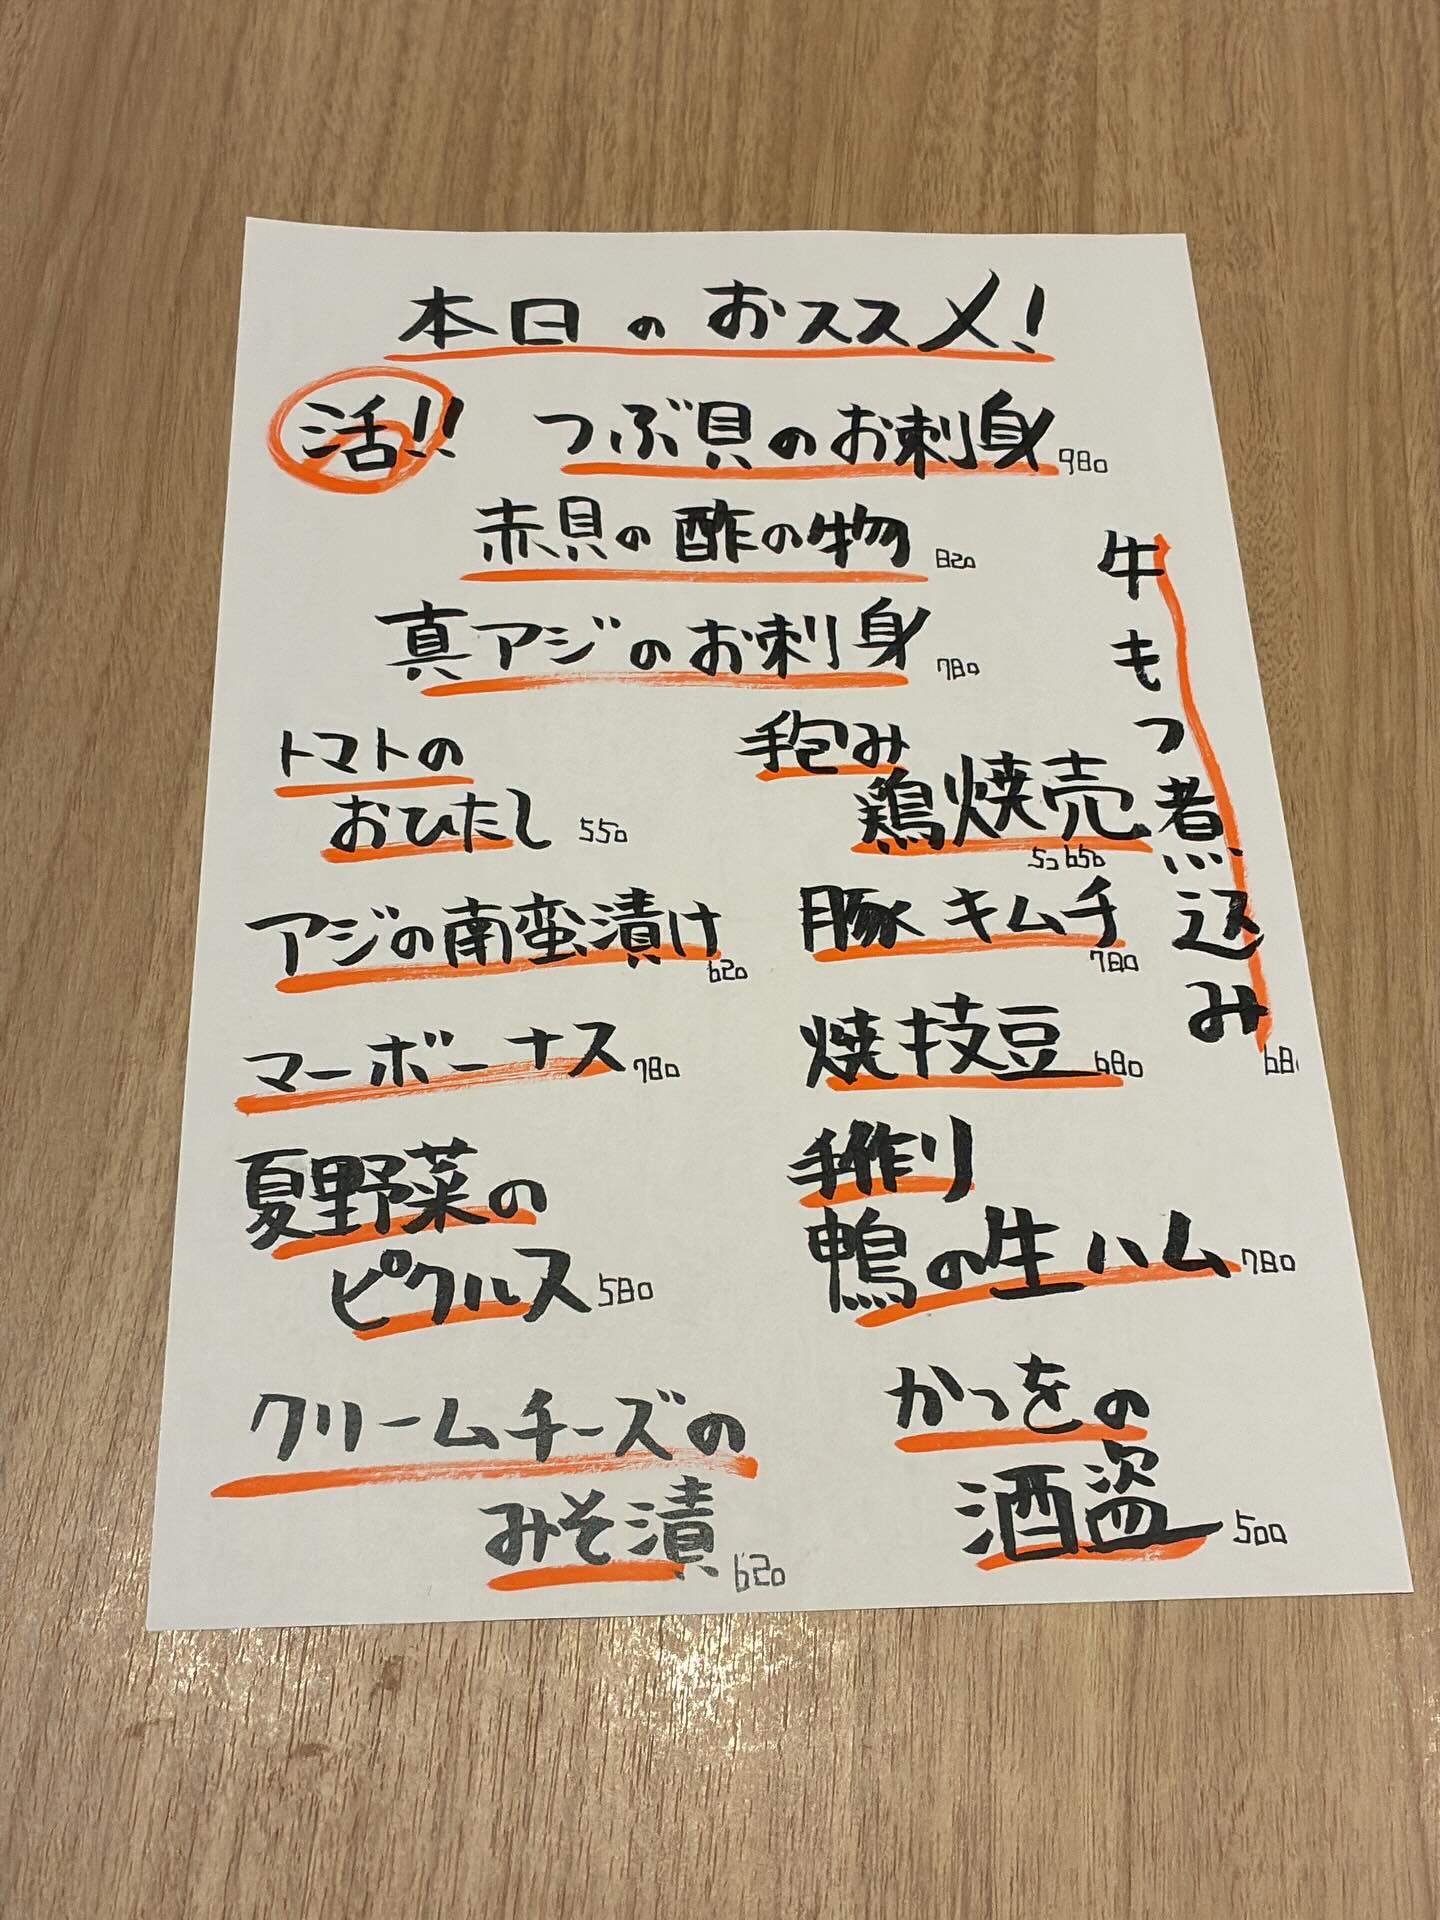 本日のおススメ!
活!! つぶ貝のお刺身 980
赤貝の酢の物 820
真アジのお刺身 780
トマトの
おひたし 550
アジの南蛮漬け 620
マーボーナス 780
夏野菜の
ピクルス 580
クリームチーズの
みそ漬 620
手包み
鶏焼売
5コ 650
豚キムチ 780
焼枝豆 680
手作り
鴨の生ハム 780
かつをの
酒盗 500
牛もつ煮込み